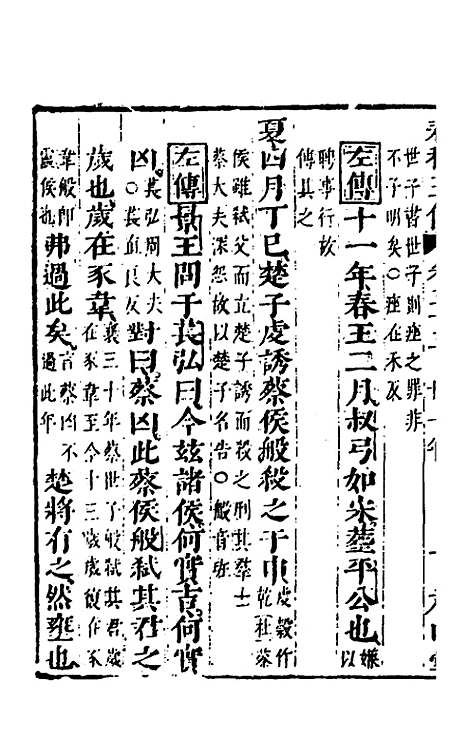 世子書世子則痤之罪非
不子明矣○痤在禾反
左傳十一年春王二月叔弓如宋葬平公也嫌以
聘事行故
傳具之
夏四月丁巳楚子虔誘蔡侯般殺之于申虔穀作乾杜蔡
侯雖弑父而立楚子誘而殺之刑其羣士
蔡大夫深怨故以楚子名告○般音班
左傳景王問于萇弘曰今兹諸侯何實吉何實
凶萇弘周大夫○萇直良反對曰蔡凶此蔡侯般弑其君之
歲也歲在豕韋襄三十年蔡世子般弑其君歲在豕韋至今十三歲歲復在豕
韋般即靈侯也弗過此矣言蔡凶不過此年楚將有之然壅也